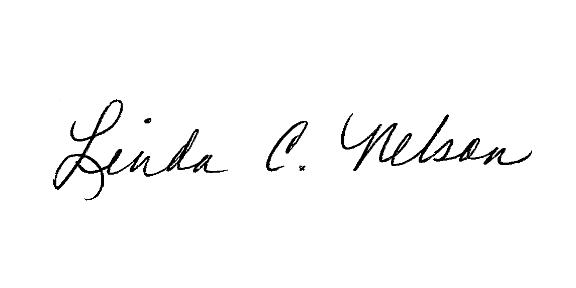 Linda C. Nelson